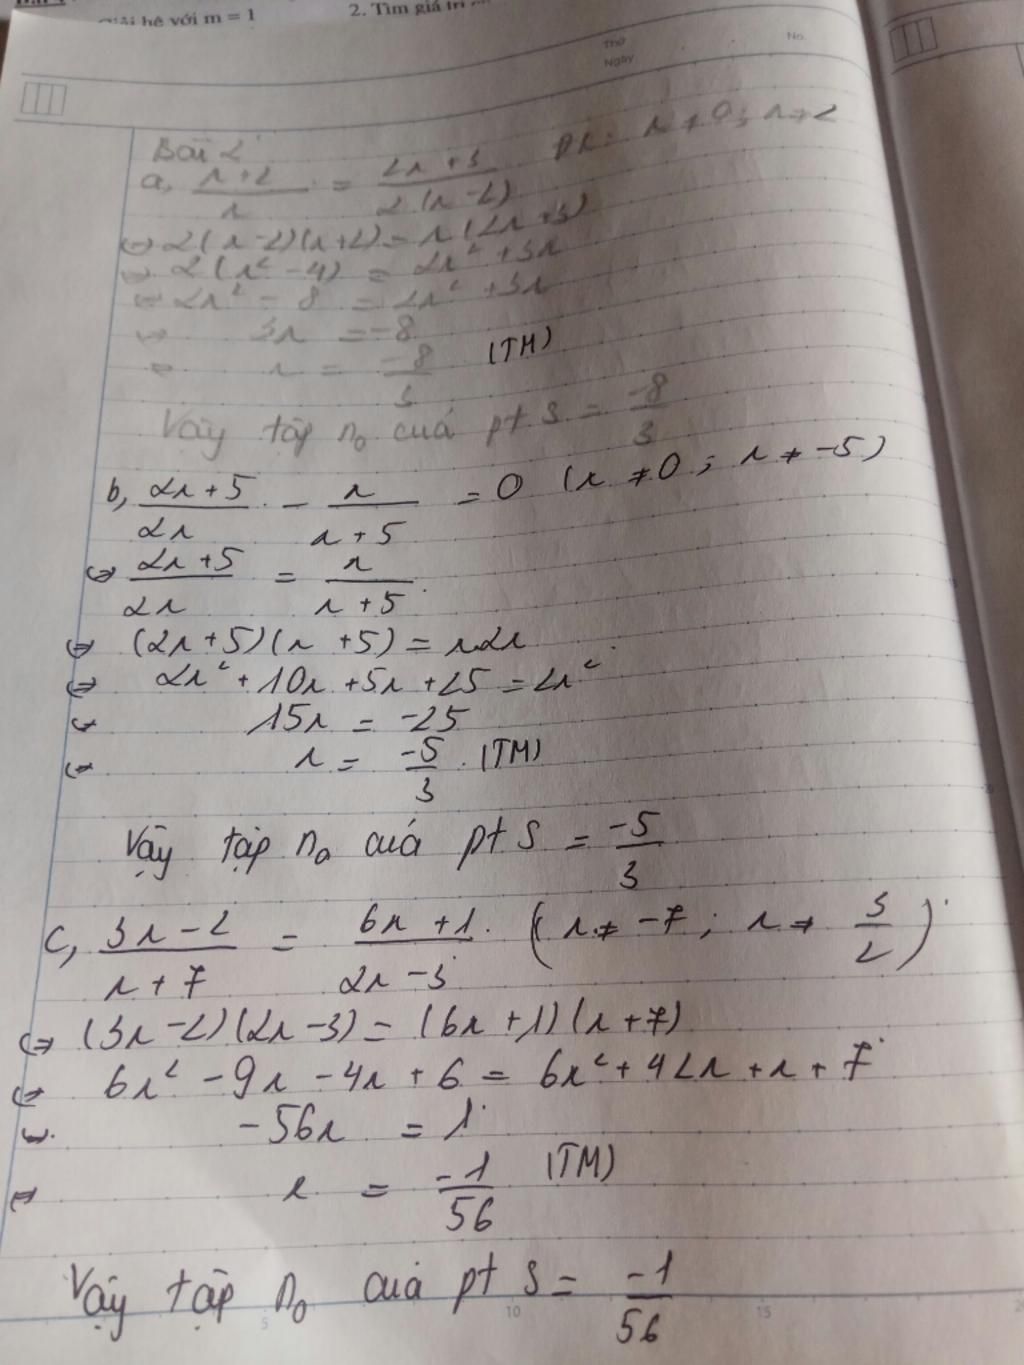 giải hệ với m = 1 2. Tìm giá trị
Thứ No.
Ngày
Bài 2
a, x+2/x = 2x+3/2(x-2) ĐK: x ≠ 0; x ≠ 2
⇔ 2(x-2)(x+2) = x(2x+3)
⇔ 2(x² - 4) = 2x² + 3x
⇔ 2x² - 8 = 2x² + 3x
⇔ 3x = -8
⇔ x = -8/3 (TM)
Vậy tập n₀ của pt S = -8/3
b, 2x+5/2x - x/x+5 = 0 (x ≠ 0; x ≠ -5)
⇔ 2x+5/2x = x/x+5
⇔ (2x+5)(x+5) = x.2x
⇔ 2x² + 10x + 5x + 25 = 2x²
⇔ 15x = -25
⇔ x = -5/3 (TM)
Vậy tập n₀ của pt S = -5/3
c, 3x-2/x+7 = 6x+1/2x-3 (x ≠ -7; x ≠ 3/2)
⇔ (3x-2)(2x-3) = (6x+1)(x+7)
⇔ 6x² - 9x - 4x + 6 = 6x² + 42x + x + 7
⇔ -56x = 1
⇔ x = -1/56 (TM)
Vậy tập n₀ của pt S = -1/56
5 10 15